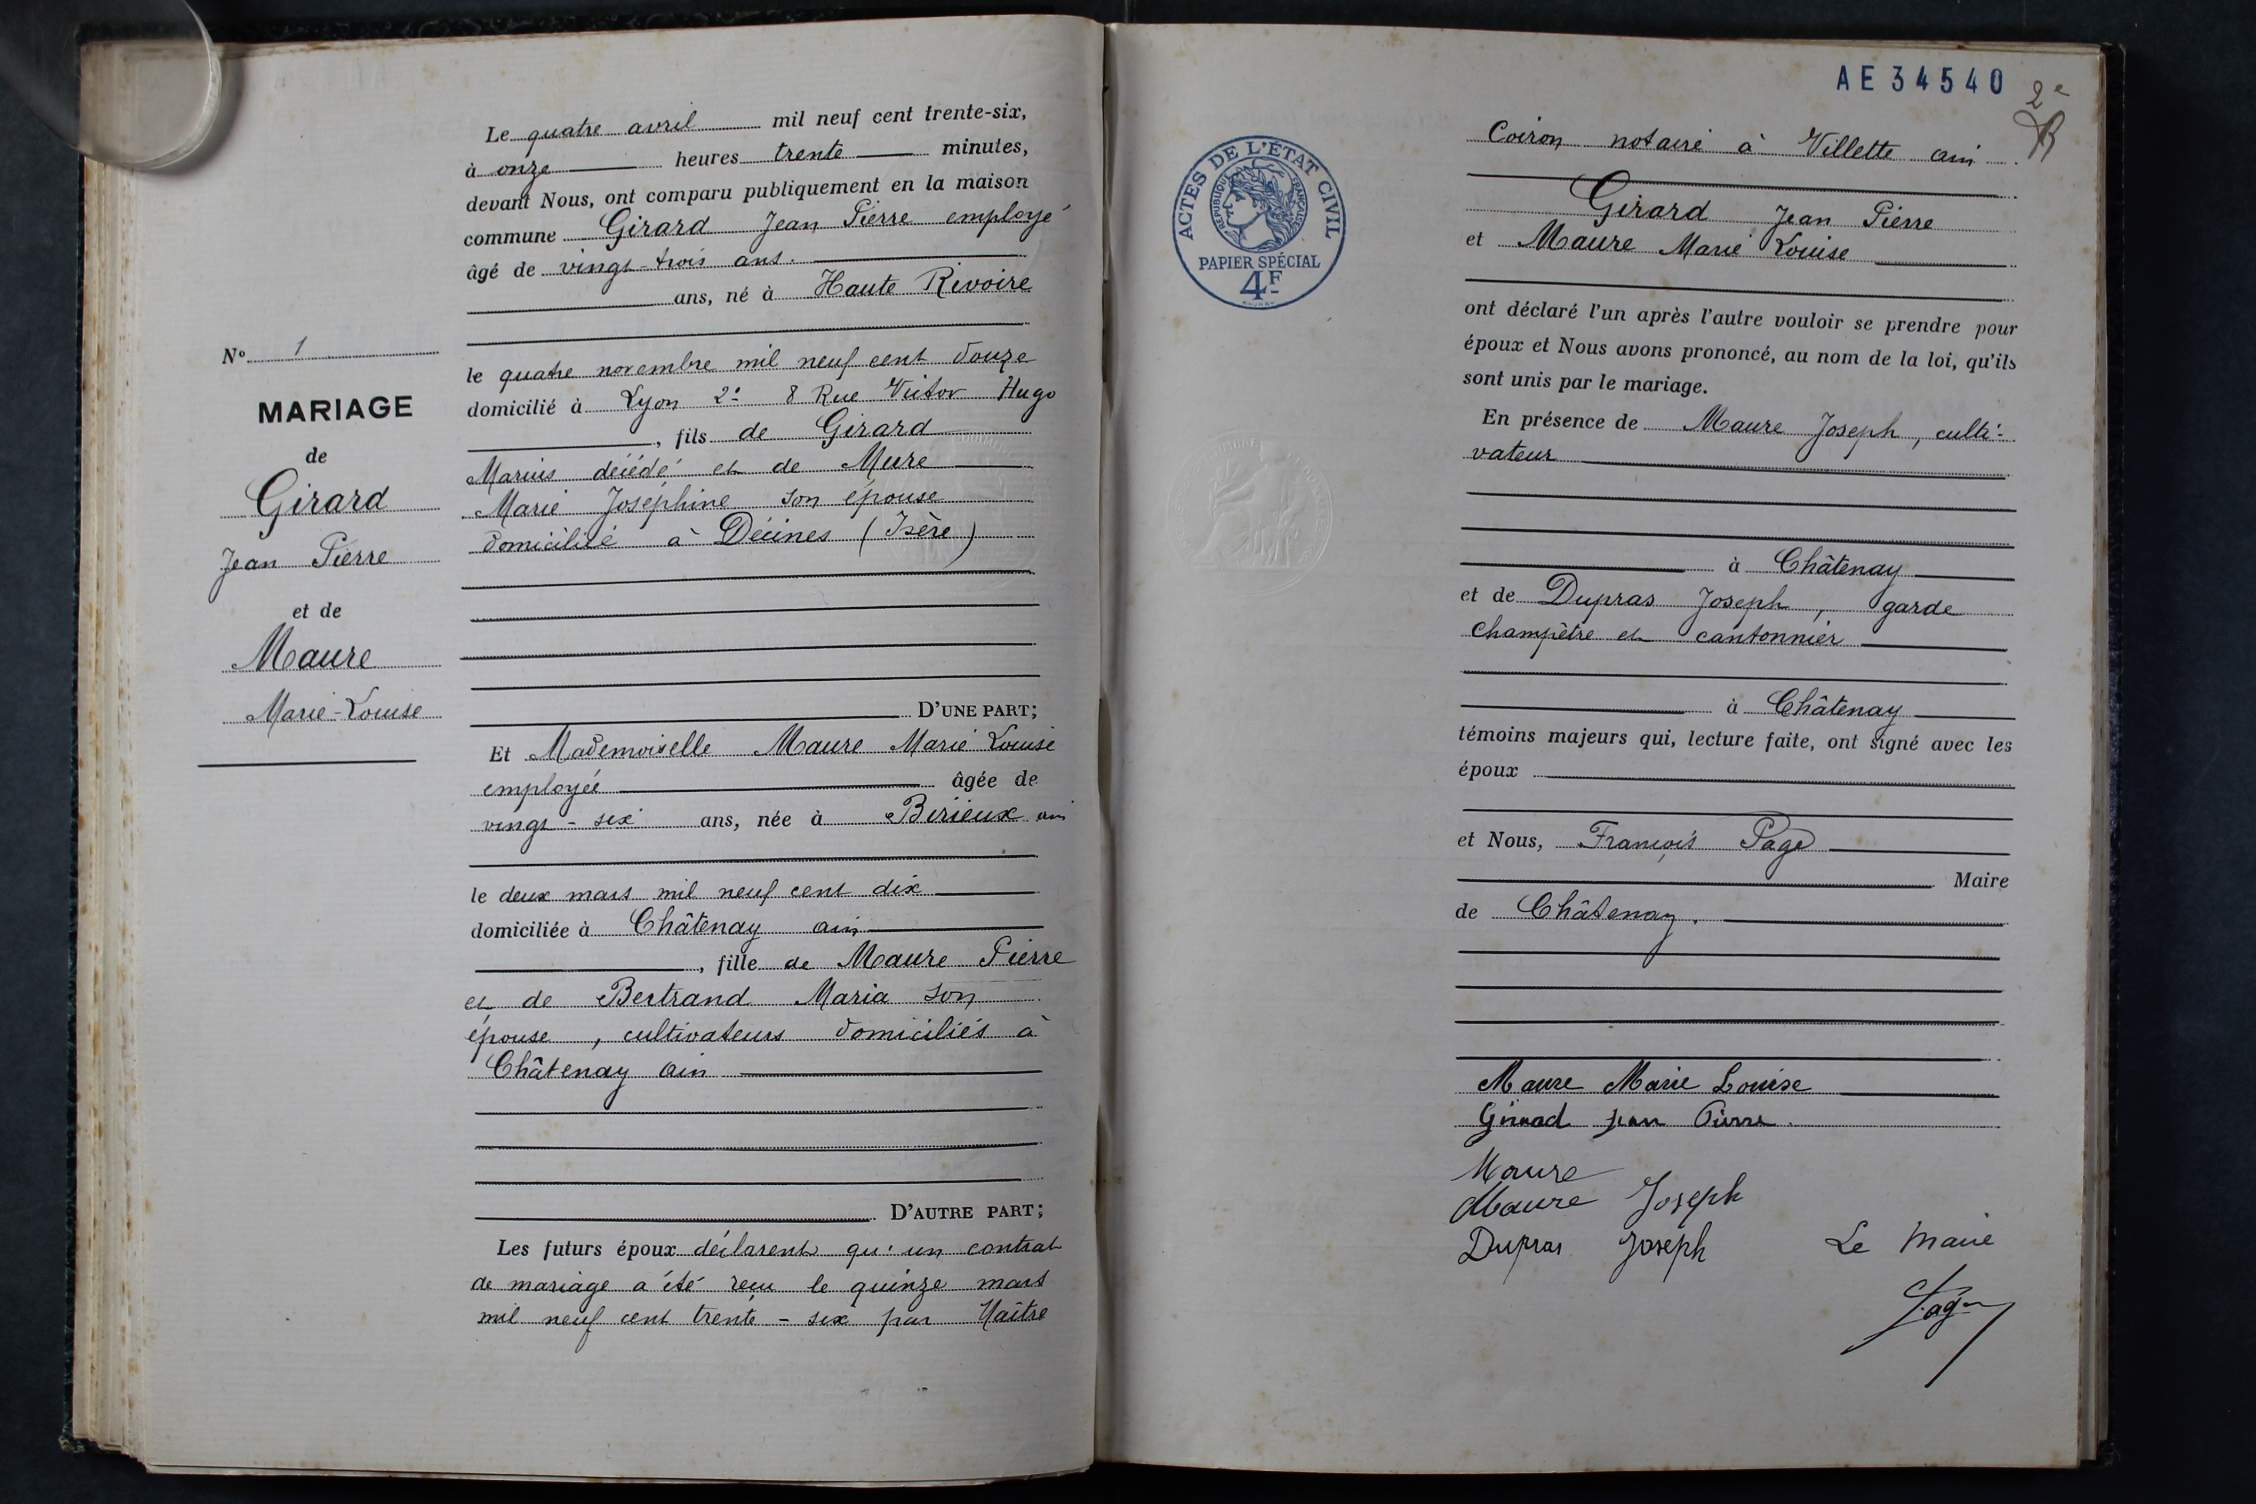 Le quatre avril mil neuf cent trente-six,
à onze heures trente minutes,
devant Nous, ont comparu publiquement en la maison
commune Girard Jean Pierre employé
âgé de vingt-trois ans.
ans, né à Haute Rivoire
le quatre novembre mil neuf cent douze
domicilié à Lyon 2e 8 Rue Victor Hugo
, fils de Girard
Marius décédé et de Mure
Marie Joséphine son épouse
domicilié à Décines (Isère)
D'UNE PART;
Nº 1
MARIAGE
de
Girard
Jean Pierre
et de
Maure
Marie-Louise
Et Mademoiselle Maure Marie Louise
employée âgée de
vingt-six ans, née à Birieux ain
le deux mars mil neuf cent dix
domiciliée à Châtenay ain
, fille de Maure Pierre
et de Bertrand Maria son
épouse, cultivateurs domiciliés à
Châtenay ain
D'AUTRE PART;
Les futurs époux déclarent qu'un contrat
de mariage a été reçu le quinze mars
mil neuf cent trente-six par Maître
AE 34540
2e
ACTES DE L'ÉTAT CIVIL
RÉPUBLIQUE FRANÇAISE
PAPIER SPÉCIAL
4F
Coiron notaire à Villette ain
Girard Jean Pierre
et Maure Marie Louise
ont déclaré l'un après l'autre vouloir se prendre pour
époux et Nous avons prononcé, au nom de la loi, qu'ils
sont unis par le mariage.
En présence de Maure Joseph, culti-
vateur
à Châtenay
et de Dupras Joseph, garde
champêtre et cantonnier
à Châtenay
témoins majeurs qui, lecture faite, ont signé avec les
époux
et Nous, François Page
Maire
de Châtenay.
Maure Marie Louise
Girard Jean Pierre.
Maure
Maure Joseph
Dupras Joseph Le Maire
Page